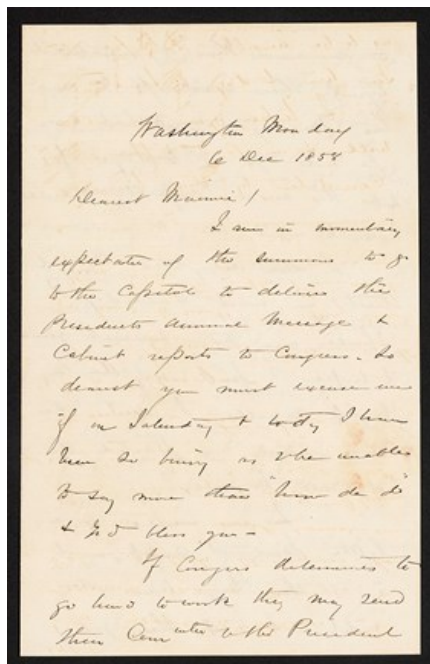 Washington Monday
6 Dec 1858
Dearest Mannie!
I am in momentary
expectation of the summons to go
to the Capitol to deliver the
Presidents Annual Message &
Cabinet reports to Congress. So
dearest you must excuse me
if on Saturday & today I have
been so busy as to be unable
to say more than "how de do"
& God bless you—
If Congress determines to
go hard to work they may send
their Com to the President